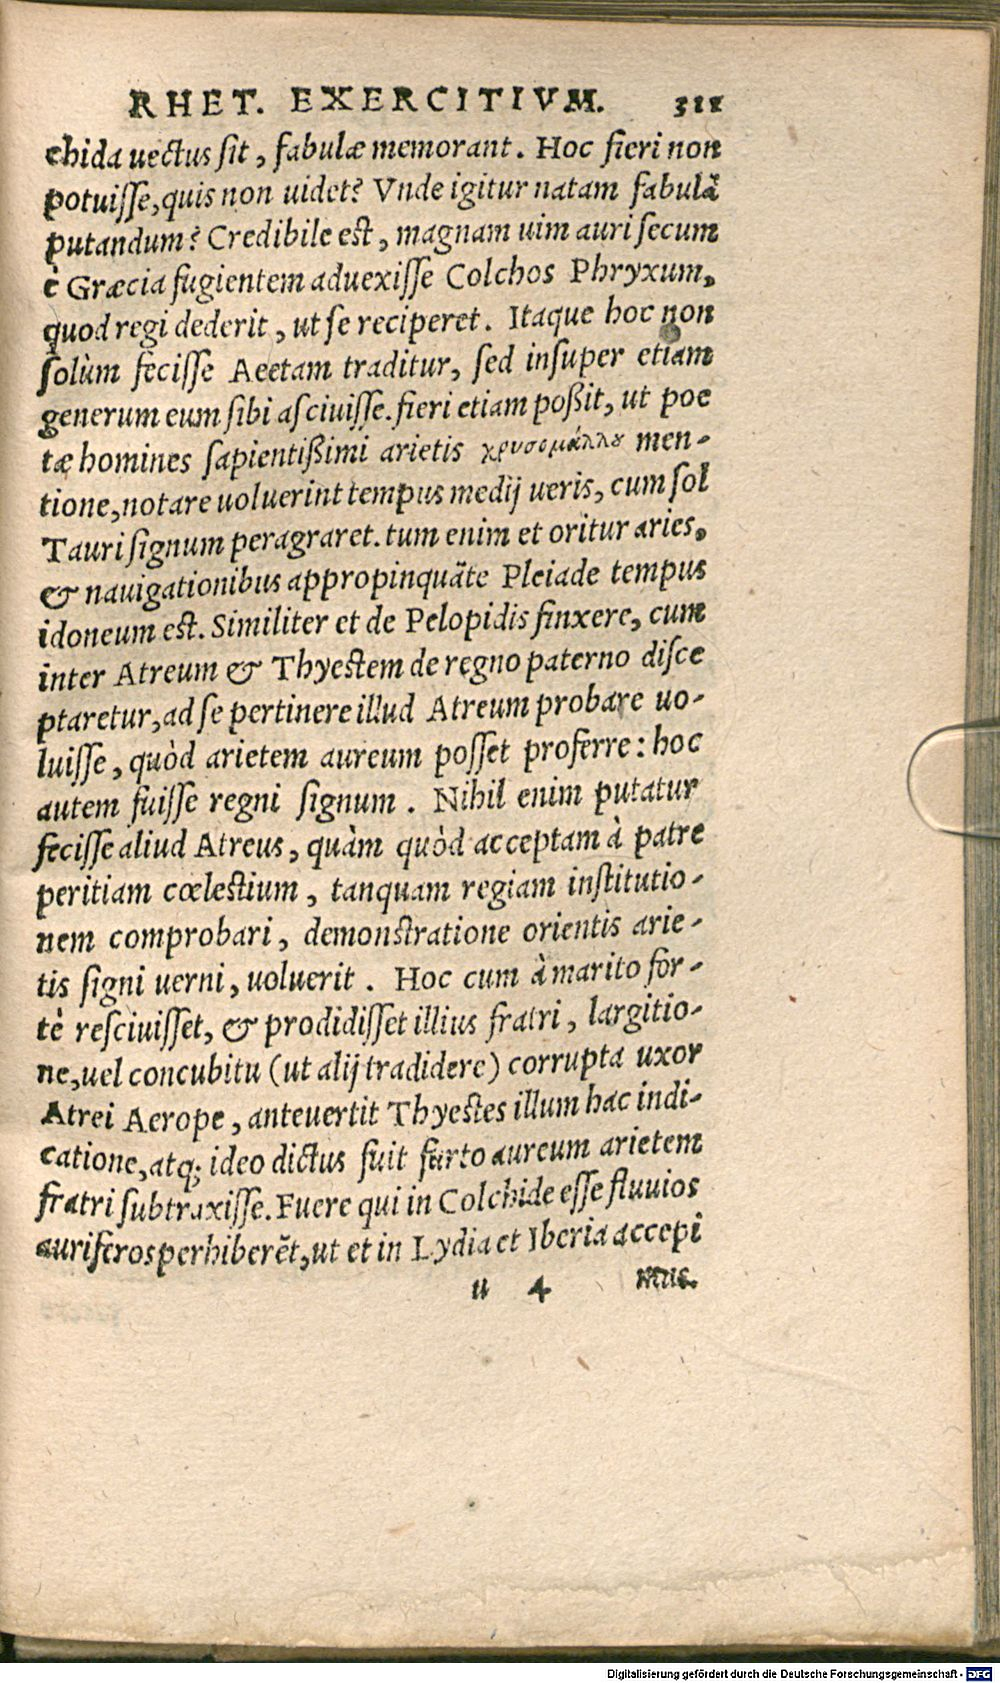 RHET. EXERCITIVM. 311
chida uectus sit, fabulæ memorant. Hoc fieri non
potuisse, quis non uidet? Vnde igitur natam fabulā
putandum? Credibile est, magnam uim auri secum
è Græcia fugientem aduexisse Colchos Phryxum,
quod regi dederit, ut se reciperet. Itaque hoc non
solùm fecisse Aeetam traditur, sed insuper etiam
generum eum sibi asciuisse. fieri etiam poßit, ut poe
tæ homines sapientißimi arietis χρυσομάλλου men-
tione, notare uoluerint tempus medij ueris, cum sol
Tauri signum peragraret. tum enim et oritur aries,
& nauigationibus appropinquāte Pleiade tempus
idoneum est. Similiter et de Pelopidis finxere, cum
inter Atreum & Thyestem de regno paterno disce
ptaretur, ad se pertinere illud Atreum probare uo-
luisse, quòd arietem aureum posset proferre: hoc
autem fuisse regni signum. Nihil enim putatur
fecisse aliud Atreus, quàm quòd acceptam à patre
peritiam cœlestium, tanquam regiam institutio-
nem comprobari, demonstratione orientis arie-
tis signi uerni, uoluerit. Hoc cum à marito for-
tè resciuisset, & prodidisset illius fratri, largitio-
ne, uel concubitu (ut alij tradidere) corrupta uxor
Atrei Aerope, anteuertit Thyestes illum hac indi-
catione, atq; ideo dictus fuit furto aureum arietem
fratri subtraxisse. Fuere qui in Colchide esse fluuios
auriferos perhiberēt, ut et in Lydia et Iberia accepi
u 4 mus.
Digitalisierung gefördert durch die Deutsche Forschungsgemeinschaft - DFG